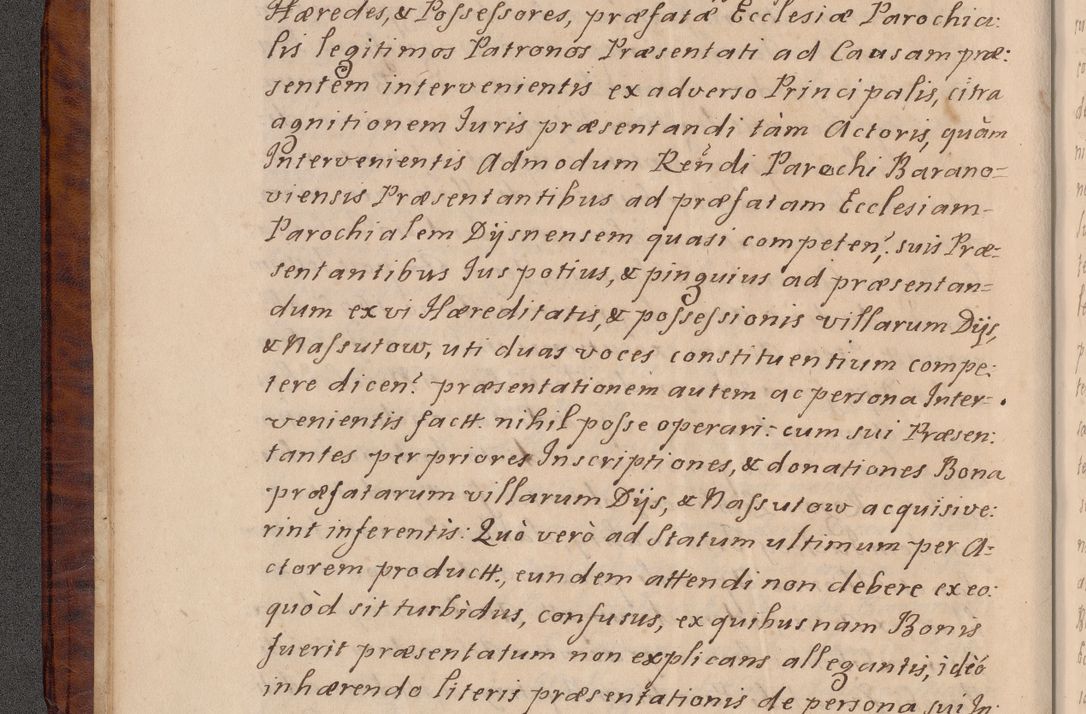 Hæredes, & Possessores, præfatæ Ecclesiæ Parochia:
lis legitimos Patronos Præsentati ad Causam præ:
sentem intervenientis ex adverso Principalis, citra
agnitionem Iuris præsentandi tàm Actoris, quàm
Intervenientis Admodum Rendi Parochi Barano=
viensis Præsentantibus ad præfatam Ecclesiam
Parochialem Dÿsnensem quasi competen: suis Præ=
sentantibus Ius potius, & pinguius ad præsentan=
dum ex vi Hæreditatis, & possessionis villarum Dÿs,
& Nassutow, uti duas voces constituentium compe:
tere dicen: præsentationem autem ac persona Inter=
venientis factt. nihil posse operari: cum sui Præsen:
tantes per priores Inscriptiones, & donationes Bona
præfatarum villarum Dÿs, & Nassutow acquisive:
rint inferentis: Quò verò ad Statum ultimum per A=
ctorem productt., eundem attendi non debere ex eo:
quòd sit turbidus, confusus, ex quibusnam Bonis
fuerit præsentatum non explicans allegantis, ideò
inhærendo literis præsentationis de persona sui In